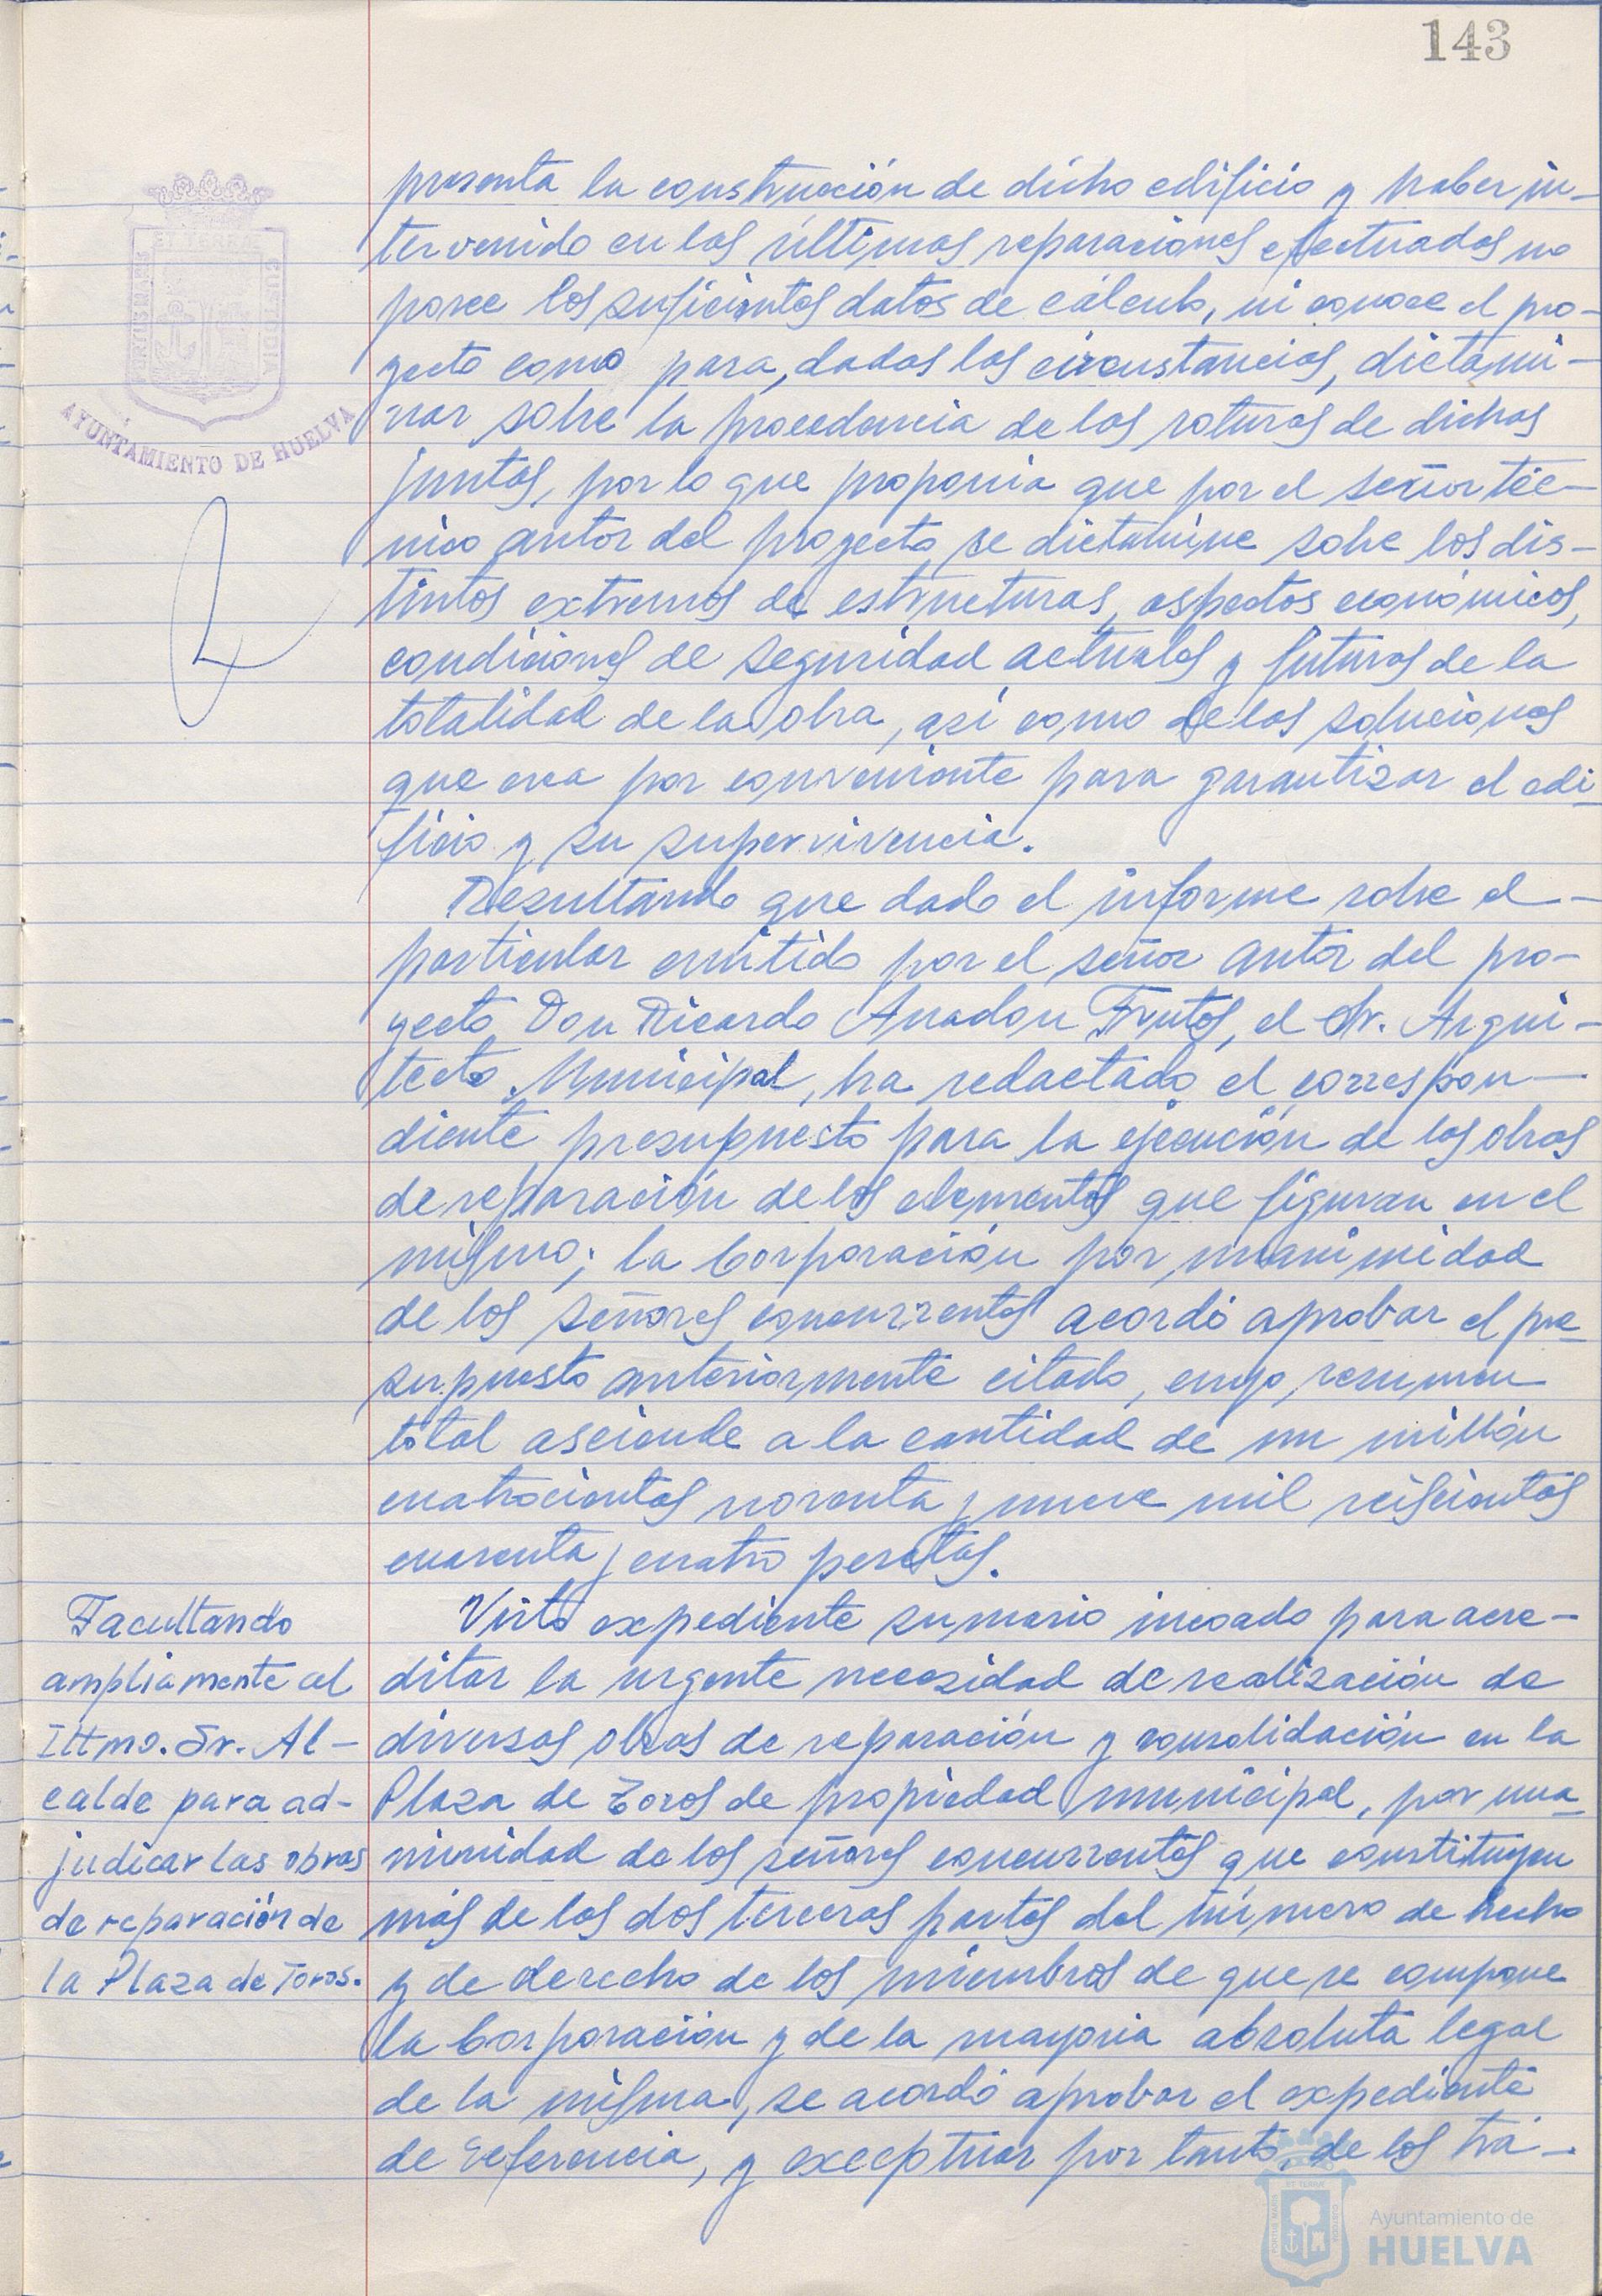 143
presenta la construcción de dicho edificio y haber in-
tervenido en las últimas reparaciones efectuadas no
posee los suficientes datos de cálculo, ni conoce el pro-
yecto como para, dadas las circustancias, dictami-
nar sobre la procedencia de las roturas de dichas
juntas, por lo que proponia que por el señor téc-
nico autor del proyecto se dictamine sobre los dis-
tintos extremos de estructuras, aspectos económicos,
condiciones de seguridad actuales y futuras de la
totalidad de la obra, así como de las soluciones
que crea por conveniente para garantizar el edi-
ficio y su supervivencia.
Resultando que dado el informe sobre el -
particular emitido por el señor autor del pro-
yecto Don Ricardo Anadon Frutos, el Sr. Arqui-
tecto Municipal, ha redactado el correspon-
diente presupuesto para la ejecución de las obras
de reparación de los elementos que figuran en el
mismo; la Corporación por unanimidad
de los señores concurrentes acordó aprobar el pre-
supuesto anteriormente citado, cuyo resumen
total asciende a la cantidad de un millón
cuatrocientas noventa y nueve mil seiscientas
cuarenta y cuatro pesetas.
Facultando
ampliamente al
Iltmo. Sr. Al-
calde para ad-
judicar las obras
de reparación de
la Plaza de Toros.
Visto expediente sumario incoado para acre-
ditar la urgente necesidad de realización de
diversas obras de reparación y consolidación en la
Plaza de Toros de propiedad municipal, por una-
nimidad de los señores concurrentes que constituyen
más de las dos terceras partes del número de hecho
y de derecho de los miembros de que se compone
la Corporación y de la mayoria absoluta legal
de la misma, se acordó aprobar el expediente
de referencia, y exceptuar por tanto, de los trá-
PORTUS MARIS
ET TERRAE
CUSTODIA
AYUNTAMIENTO DE HUELVA
Ayuntamiento de
HUELVA